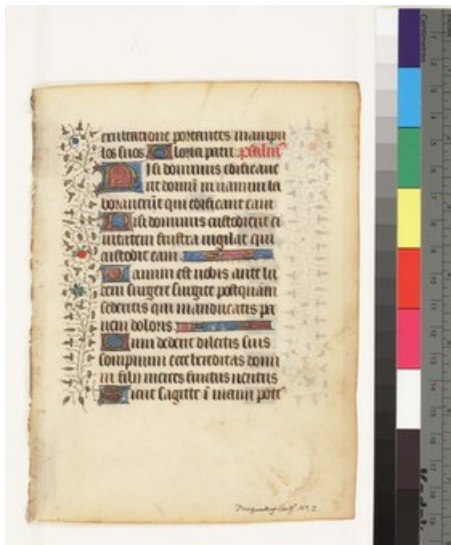 exultatione portantes manipu
los suos. Gloria patri. psalm̄
Nisi dominus edificaue
rit domū in uanum la
borauerūt qui edificant eam
Nisi dominus custodierit ci
uitatem frustra uigilat qui
custodit eam
Uanum est uobis ante lu
cem surgere surgite postquam
sederitis qui manducatis pa
nem doloris
Cum dederit dilectis suis
sompnum ecce hereditas domi
ni filii merces fructus uentris
Sicut sagitte ī manu pote